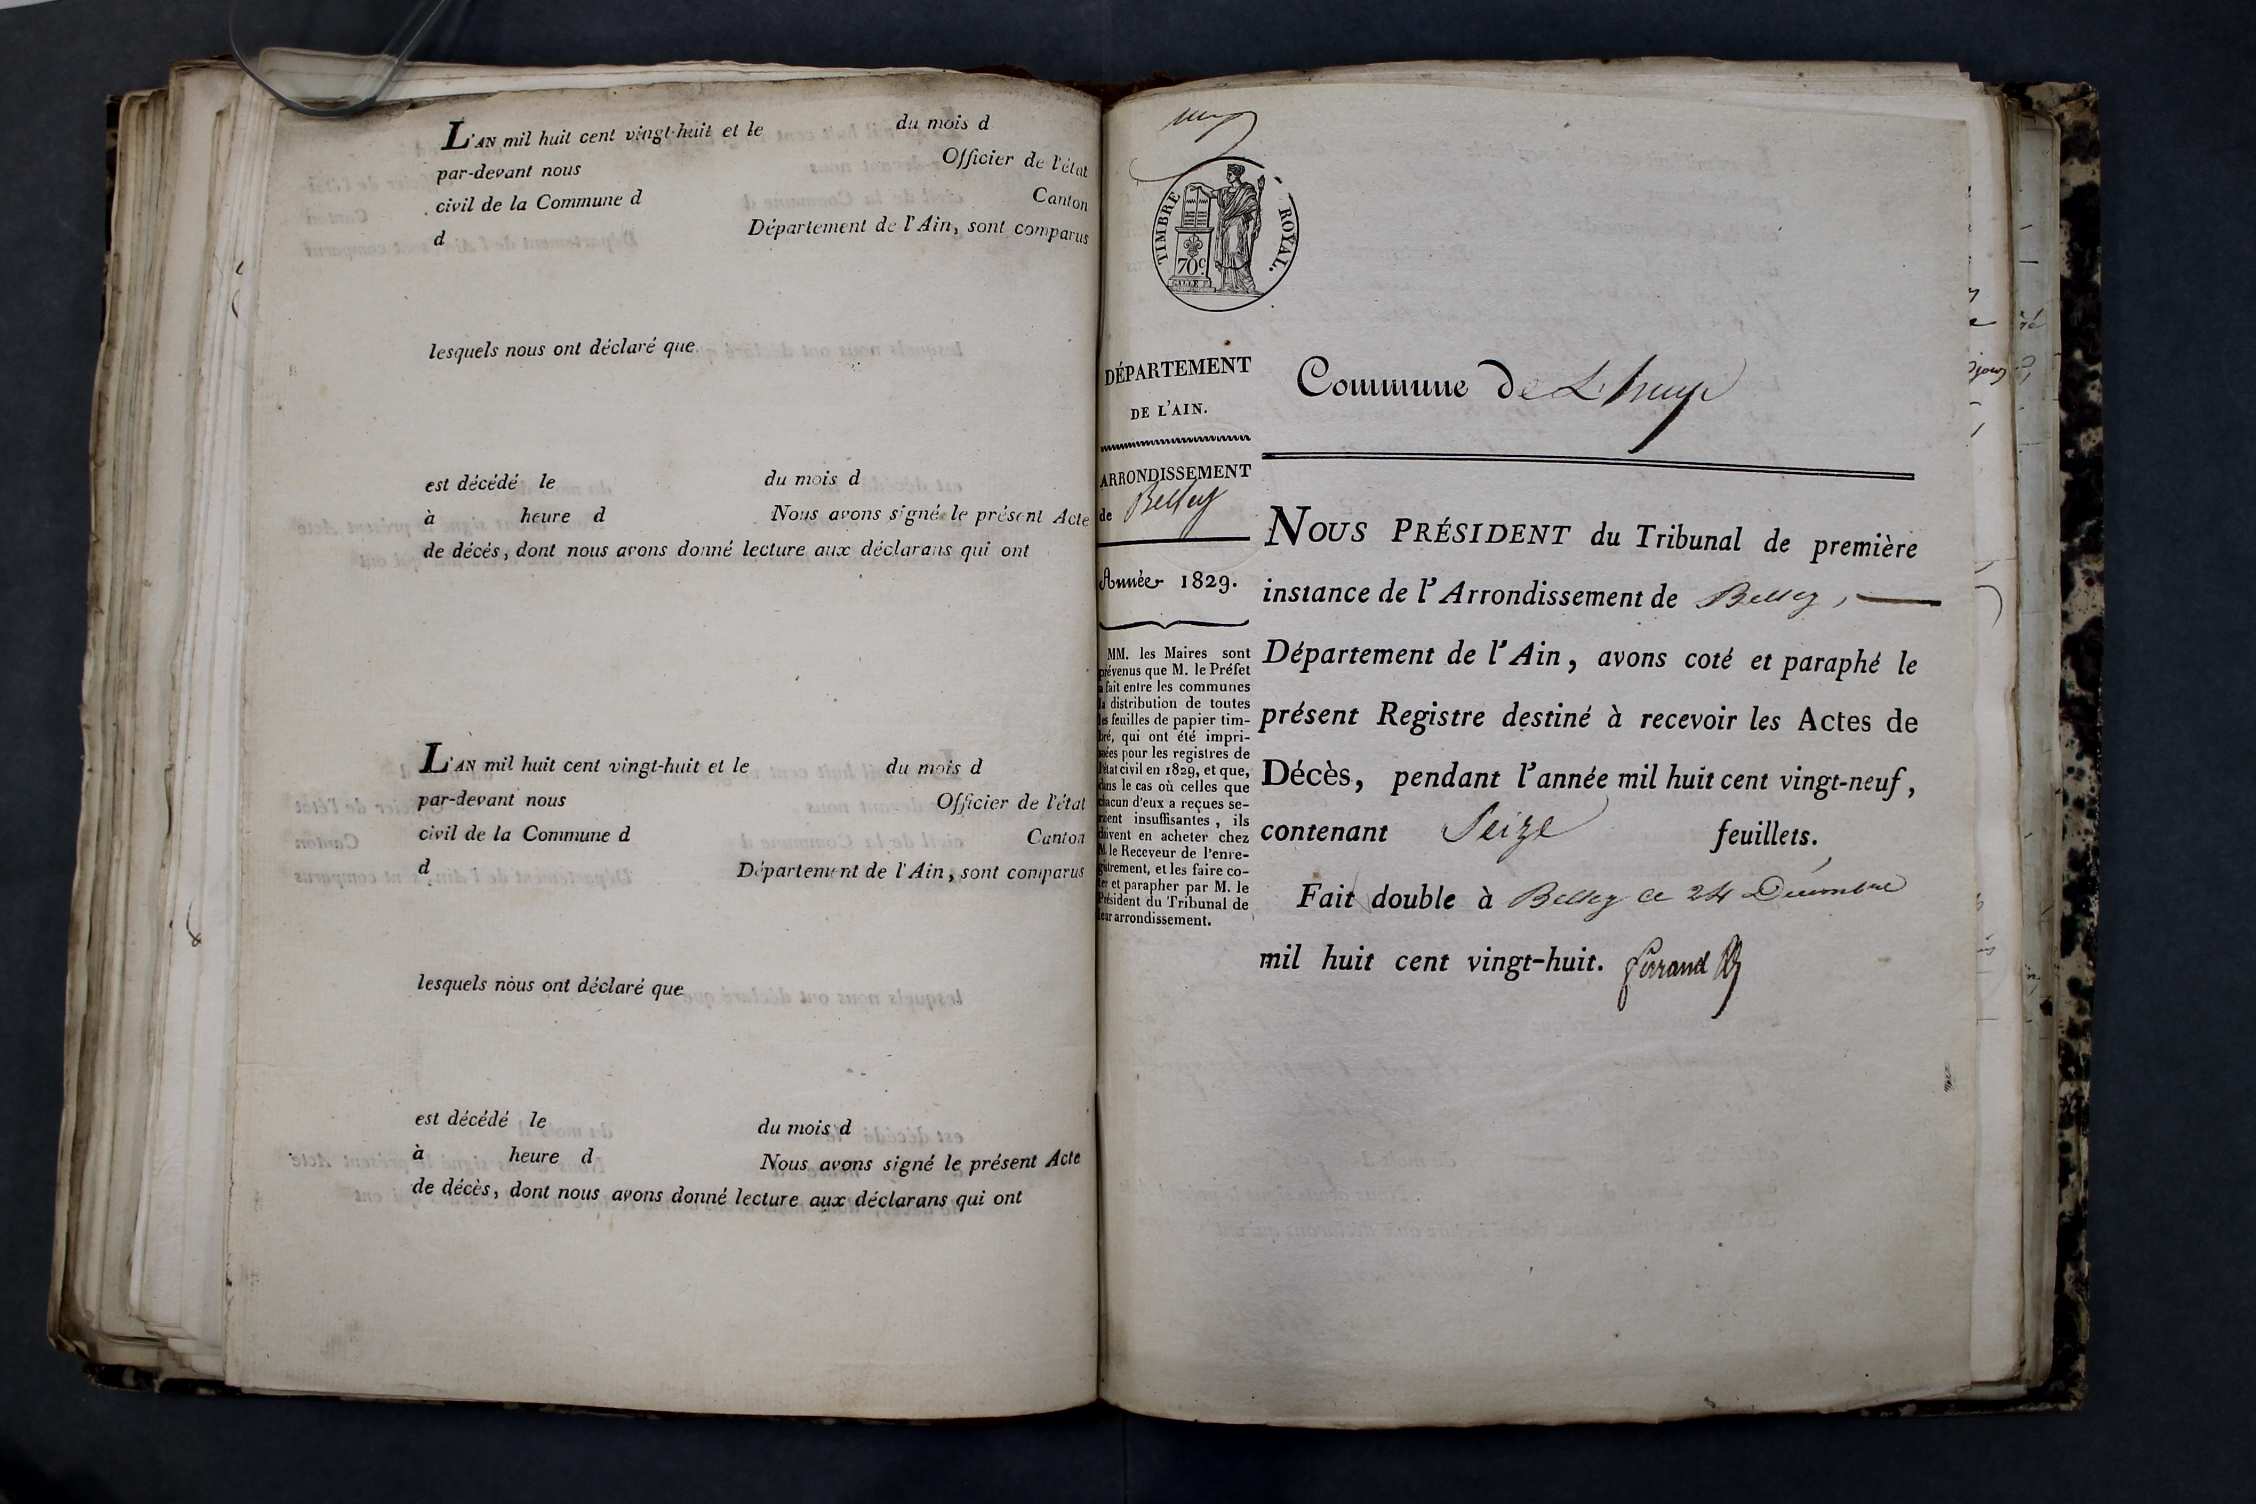 L'AN mil huit cent vingt-huit et le du mois d
par-devant nous Officier de l'état
civil de la Commune d Canton
d Département de l'Ain, sont comparus
lesquels nous ont déclaré que
est décédé le du mois d
à heure d Nous avons signé le présent Acte
de décés, dont nous avons donné lecture aux déclarans qui ont
L'AN mil huit cent vingt-huit et le du mois d
par-devant nous Officier de l'état
civil de la Commune d Canton
d Département de l'Ain, sont comparus
lesquels nous ont déclaré que
est décédé le du mois d
à heure d Nous avons signé le présent Acte
de décès, dont nous avons donné lecture aux déclarans qui ont
TIMBRE ROYAL.
70c.
DÉPARTEMENT
DE L'AIN.
ARRONDISSEMENT
de Belley
Année 1829.
MM. les Maires sont
prévenus que M. le Préfet
a fait entre les communes
la distribution de toutes
les feuilles de papier tim-
bré, qui ont été impri-
mées pour les registres de
l'état civil en 1829, et que,
dans le cas où celles que
chacun d'eux a reçues se-
raient insuffisantes, ils
doivent en acheter chez
M. le Receveur de l'enre-
gistrement, et les faire co-
ter et parapher par M. le
Président du Tribunal de
leur arrondissement.
Commune de Lhuys
NOUS PRÉSIDENT du Tribunal de première
instance de l'Arrondissement de Belley,
Département de l'Ain, avons coté et paraphé le
présent Registre destiné à recevoir les Actes de
Décès, pendant l'année mil huit cent vingt-neuf,
contenant Seize feuillets.
Fait double à Belley ce 24 Décembre
mil huit cent vingt-huit.